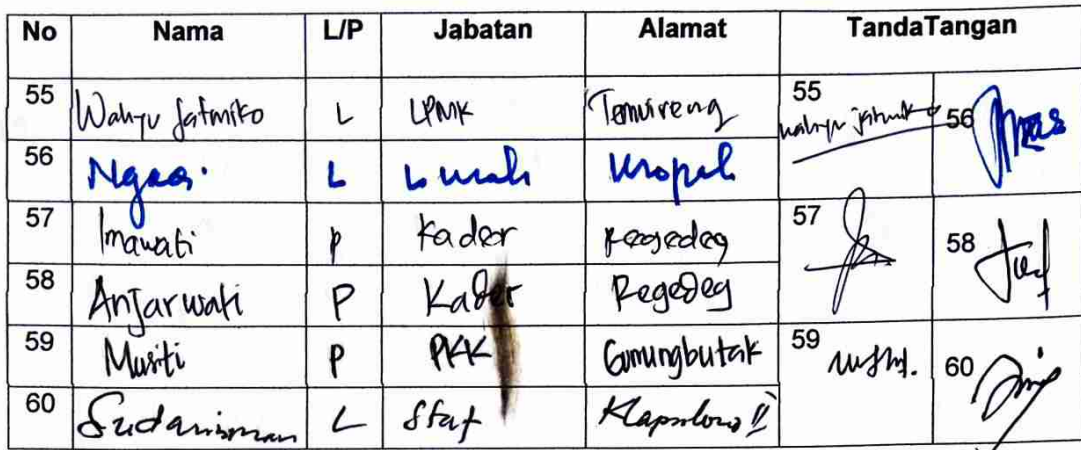 No Nama L/P Jabatan Alamat TandaTangan
55 Wahyu Jatmiko L LPMK Temuireng 55 wahyu jatmiko 56
56 Ngasi. L Lurah
57 Imawati P Kader Regedeg 57 58
58 Anjarwati P Kader Regedeg
59 Musiti P PKK Gunungbutak 59 60
60 L Staf